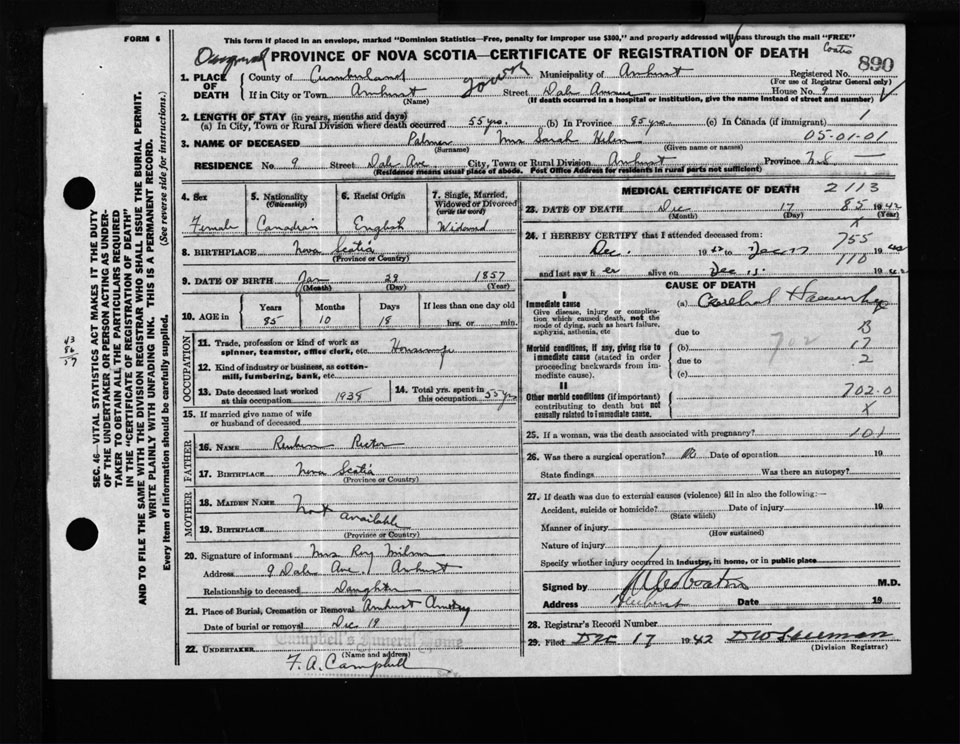 FORM 6
This form if placed in an envelope, marked "Dominion Statistics—Free, penalty for improper use $300," and properly addressed will pass through the mail "FREE"
PROVINCE OF NOVA SCOTIA—CERTIFICATE OF REGISTRATION OF DEATH
Coates
890
1. PLACE OF DEATH
County of Cumberland Municipality of Amherst Registered No.
(For use of Registrar General only)
If in City or Town Amherst Street Dale Avenue House No. 9
(Name) (If death occurred in a hospital or institution, give the name instead of street and number)
2. LENGTH OF STAY (in years, months and days)
(a) In City, Town or Rural Division where death occurred 55 yrs. (b) In Province 85 yrs. (c) In Canada (if immigrant)
1
3. NAME OF DECEASED Palmer Mrs Sarah Helen 05-01-01
(Surname) (Given name or names)
RESIDENCE No 9 Street Dale Ave City, Town or Rural Division Amherst Province N.S
(Residence means usual place of abode. Post Office Address for residents in rural parts not sufficient)
4. Sex
Female
5. Nationality (Citizenship)
Canadian
6. Racial Origin
English
7. Single, Married, Widowed or Divorced (write the word)
Widowed
8. BIRTHPLACE Nova Scotia
(Province or Country)
9. DATE OF BIRTH Jan 29 1857
(Month) (Day) (Year)
10. AGE in Years Months Days If less than one day old
85 10 18 hrs. or min.
OCCUPATION
11. Trade, profession or kind of work as spinner, teamster, office clerk, etc. Housewife
12. Kind of industry or business, as cotton-mill, lumbering, bank, etc.
13. Date deceased last worked at this occupation 1938
14. Total yrs. spent in this occupation 55 yrs
15. If married give name of wife or husband of deceased
FATHER
16. NAME Reuben Rector
17. BIRTHPLACE Nova Scotia
(Province or Country)
MOTHER
18. MAIDEN NAME Not
19. BIRTHPLACE Available
(Province or Country)
20. Signature of informant Mrs Roy
Address 9 Dale Ave, Amherst
Relationship to deceased Daughter
21. Place of Burial, Cremation or Removal Amherst
Date of burial or removal Dec 19
Campbell's Funeral Home
22. UNDERTAKER
(Name and address)
F. A. Campbell
MEDICAL CERTIFICATE OF DEATH
2113
23. DATE OF DEATH Dec 17 85 1942
(Month) (Day) (Year)
24. I HEREBY CERTIFY that I attended deceased from:
755
Dec. 1942 to Dec 17 1942
110
and last saw h er alive on Dec 1942
CAUSE OF DEATH
I
Immediate cause
Give disease, injury or complication which caused death, not the mode of dying, such as heart failure, asphyxia, asthenia, etc
(a)
due to
Morbid conditions, if any, giving rise to immediate cause (stated in order proceeding backwards from immediate cause).
(b) 17
due to 2
(c)
702
II
Other morbid conditions (if important) contributing to death but not causally related to immediate cause.
702.0
X
25. If a woman, was the death associated with pregnancy? 101
26. Was there a surgical operation? no Date of operation 19
State findings Was there an autopsy?
27. If death was due to external causes (violence) fill in also the following:—
Accident, suicide or homicide? Date of injury 19
(State which)
Manner of injury
(How sustained)
Nature of injury
Specify whether injury occurred in industry, in home, or in public place
Signed by M.D.
Address Amherst Date 19
28. Registrar's Record Number
29. Filed Dec 17 1942
(Division Registrar)
SEC. 46—VITAL STATISTICS ACT MAKES IT THE DUTY
OF THE UNDERTAKER OR PERSON ACTING AS UNDER-
TAKER TO OBTAIN ALL THE PARTICULARS REQUIRED
IN THE "CERTIFICATE OF REGISTRATION OF DEATH"
AND TO FILE THE SAME WITH THE DIVISION REGISTRAR WHO SHALL ISSUE THE BURIAL PERMIT.
WRITE PLAINLY WITH UNFADING INK. THIS IS A PERMANENT RECORD.
Every item of information should be carefully supplied. (See reverse side for instructions.)